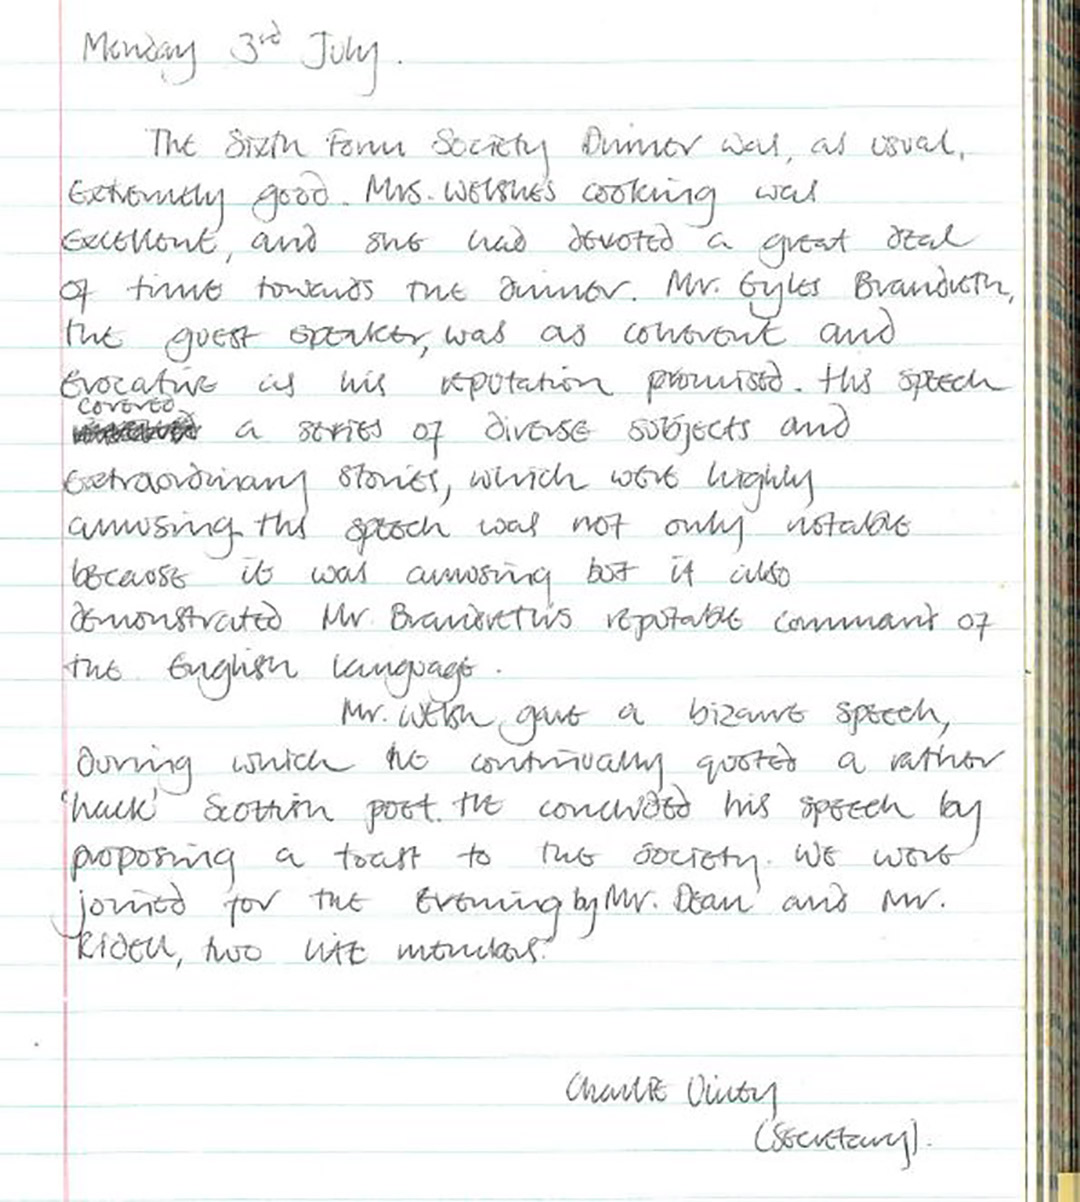 Monday 3rd July.
The Sixth Form Society Dinner was, as usual,
extremely good. Mrs. Welshe's cooking was
excellent, and she had devoted a great deal
of time towards the dinner. Mr. Gyles Brandreth,
the guest speaker, was as coherent and
evocative as his reputation promised. His speech
covered
a series of diverse subjects and
extraordinary stories, which were highly
amusing. His speech was not only notable
because it was amusing but it also
demonstrated Mr. Brandreth's reputable command of
the English language.
Mr. Welsh gave a bizarre speech,
during which he continually quoted a rather
'hack' Scottish poet. He concluded his speech by
proposing a toast to the society. We were
joined for the evening by Mr. Dean and Mr.
Ridell, two life members.
Charlie
(Secretary).